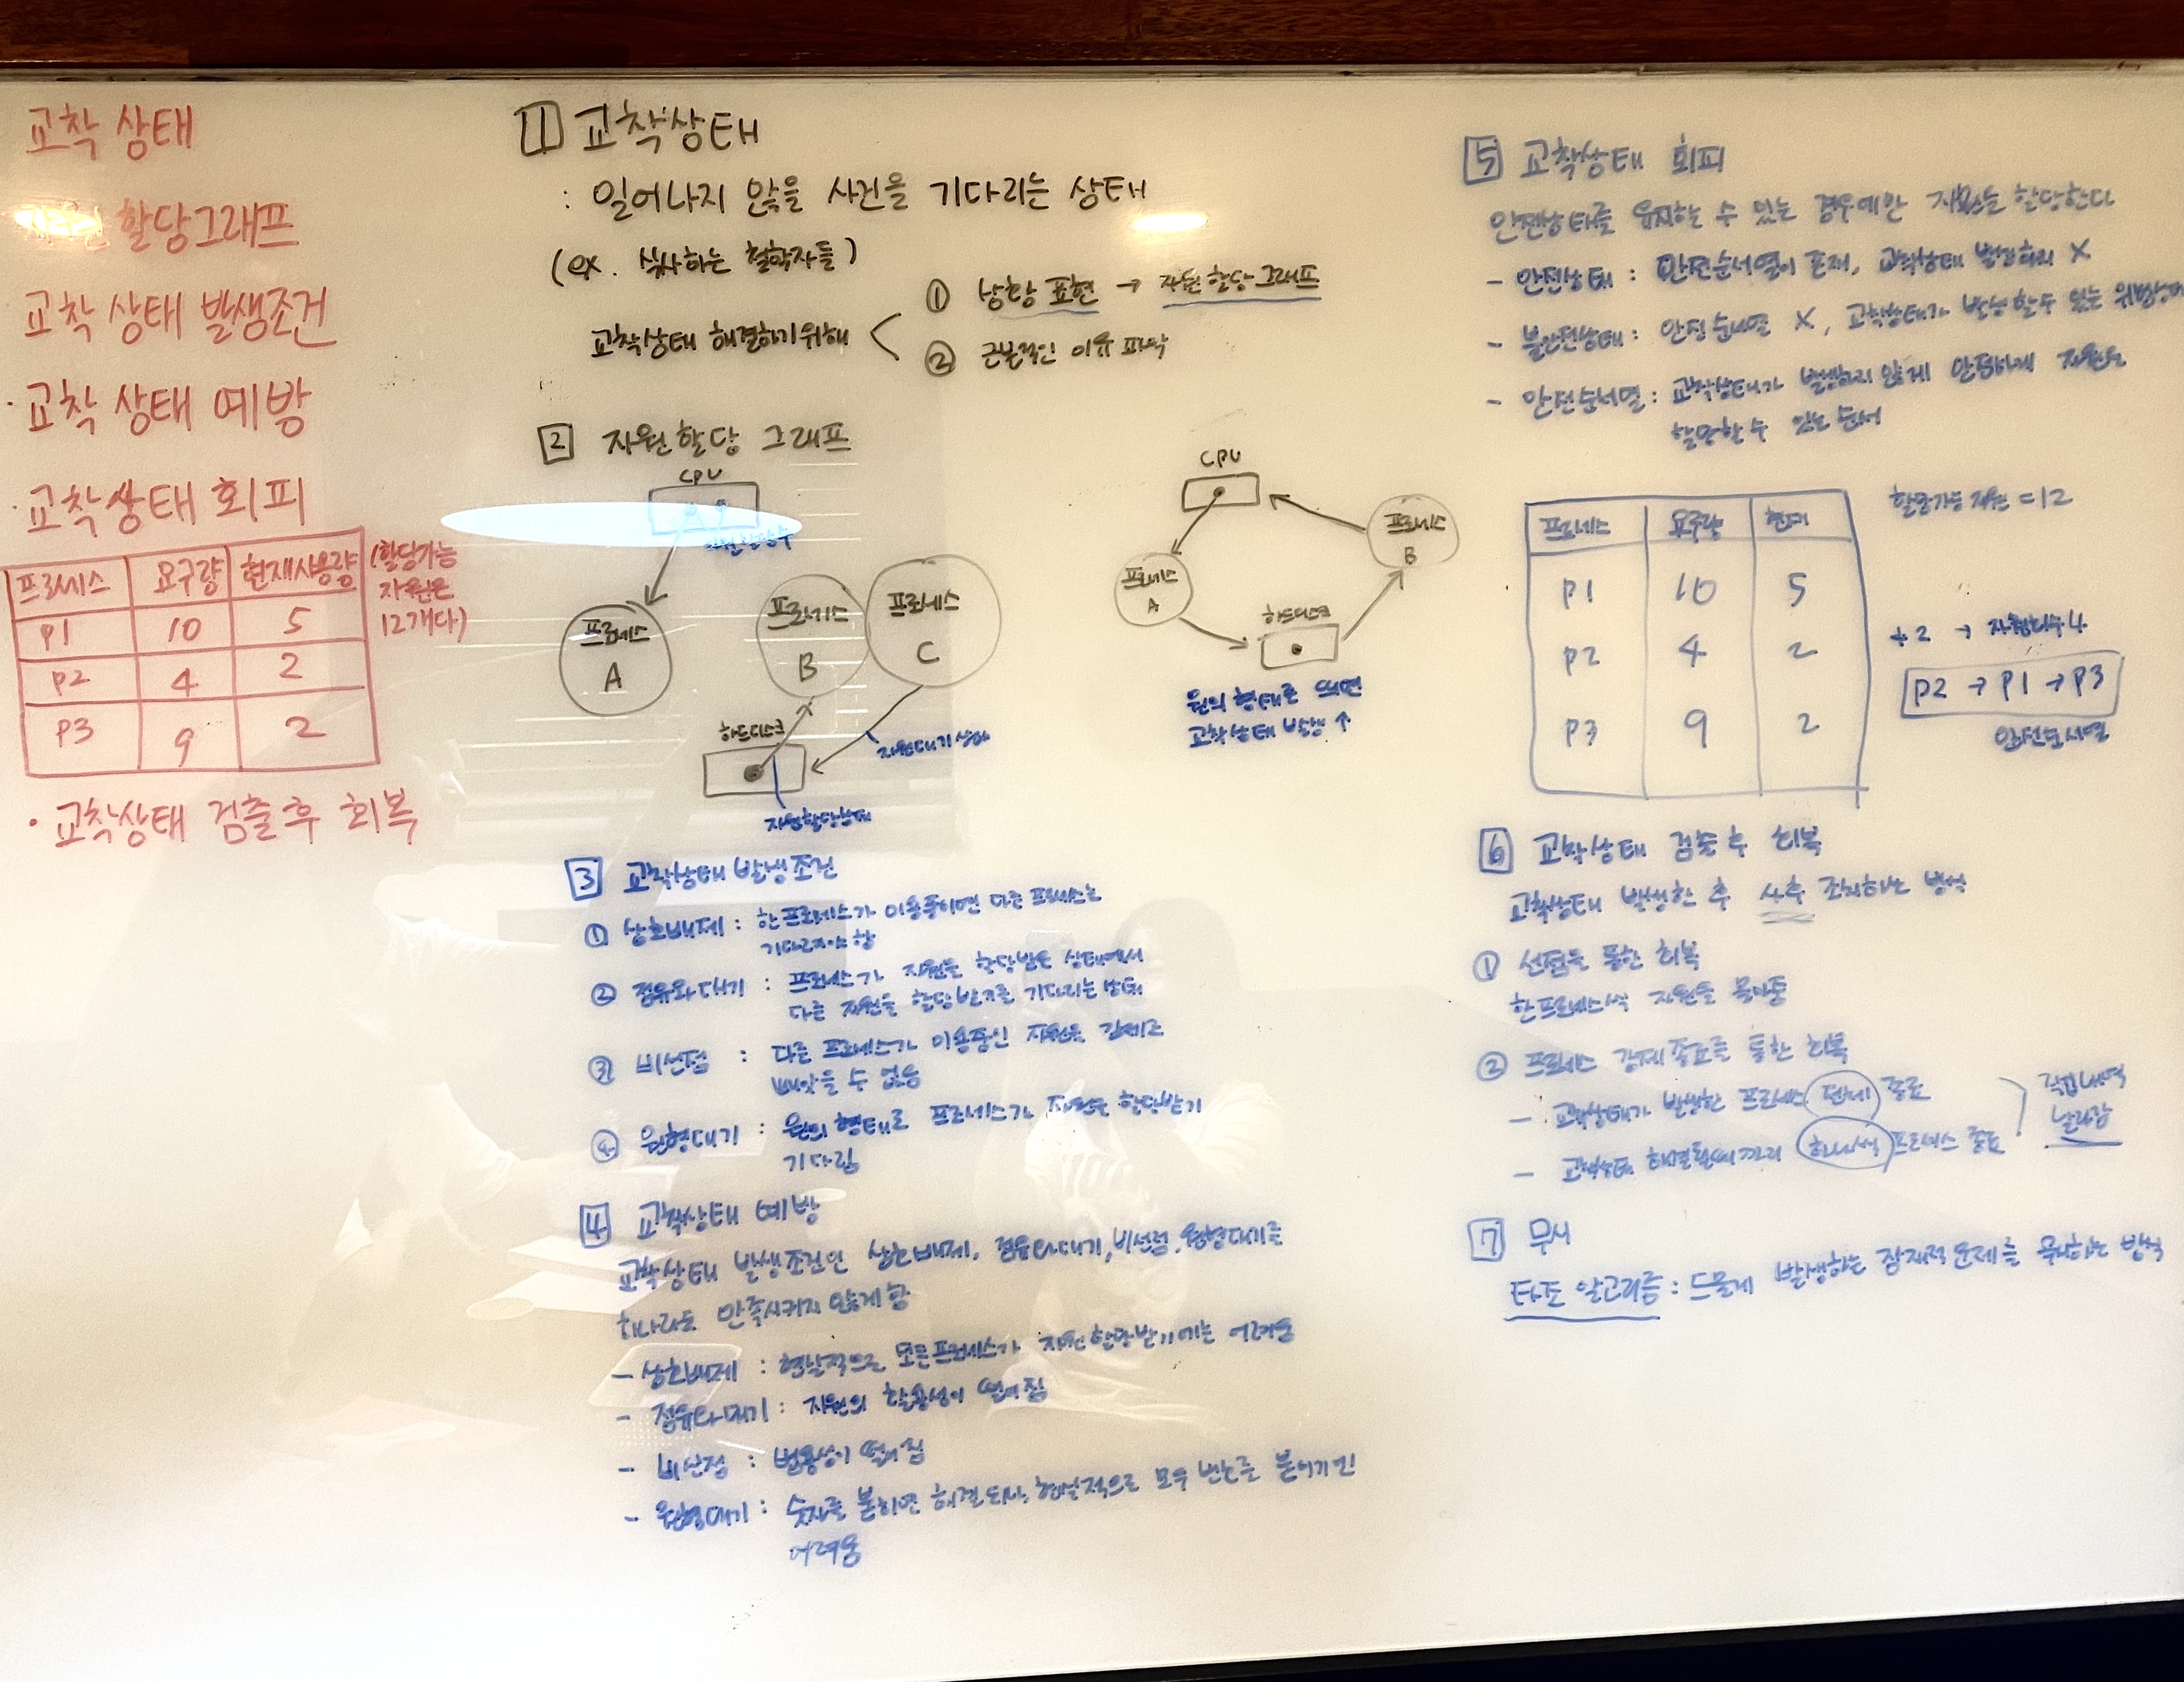 교착 상태
자원 할당그래프
교착 상태 발생조건
· 교착 상태 예방
· 교착상태 회피
프로세스 요구량 현재사용량
(할당가능
자원은
12개다)
P1 10 5
P2 4 2
P3 9 2
· 교착상태 검출 후 회복
1 교착상태
: 일어나지 않을 사건을 기다리는 상태
(ex. 식사하는 철학자들)
교착상태 해결하기위해 <
① 상황 표현 → 자원 할당 그래프
② 근본적인 이유 파악
2 자원할당 그래프
CPU
프로세스
A
프로세스
B
프로세스
C
하드디스크
자원대기상태
자원할당상태
CPU
프로세스
A
프로세스
B
하드디스크
원의 형태를 띄면
교착상태 발생↑
3 교착상태 발생조건
① 상호배제 : 한 프로세스가 이용중이면 다른 프로세스는
기다려야 함
② 점유와 대기 : 프로세스가 자원을 할당받은 상태에서
다른 자원을 할당받기를 기다리는 상태
③ 비선점 : 다른 프로세스가 이용중인 자원을 강제로
빼앗을 수 없음
④ 원형대기 : 원의 형태로 프로세스가 자원을 할당받기
기다림
4 교착상태 예방
교착상태 발생조건인 상호배제, 점유와대기, 비선점, 원형대기를
하나라도 만족시키지 않게 함
- 상호배제 : 현실적으로 모든프로세스가 자원할당받기에는 어려움
- 점유와 대기 : 자원의 활용성이 떨어짐
- 비선점 : 범용성이 떨어짐
- 원형대기 : 숫자를 붙이면 해결되나, 현실적으로 모두 번호를 붙이기긴
어려움
5 교착상태 회피
안전상태를 유지하는 수 있는 경우에만 자원을 할당한다
- 안전상태 : 안전순서열이 존재, 교착상태 발생하지 X
- 불안전상태 : 안전순서열 X, 교착상태가 발생할수 있는 위험상태
- 안전순서열 : 교착상태가 발생하지 않게 안전하게 자원을
할당할 수 있는 순서
할당가능 자원 = 12
프로세스 요구량 현재
P1 10 5
P2 4 2
P3 9 2
+2 →
P2 → P1 → P3
안전순서열
6 교착상태 검출 후 회복
교착상태 발생한 후 사후 조치하는 방식
① 선점을 통한 회복
한프로세스씩 자원을 몰아줌
② 프로세스 강제종료를 통한 회복
- 교착상태가 발생한 프로세스 전체 종료
- 교착상태 해결될때까지 하나씩 프로세스 종료
작업내역
날라감
7 무시
타조 알고리즘 : 드물게 발생하는 잠재적 문제를 무시하는 방식